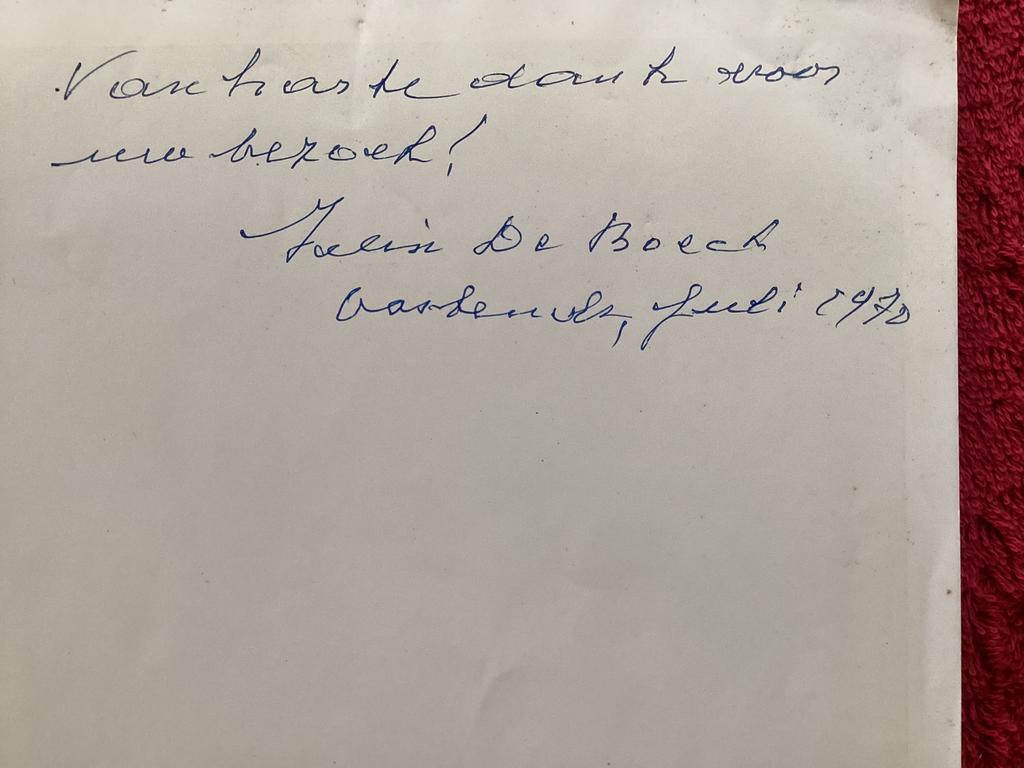 Van harte dank voor
uw bezoek!
Felix De Boeck
Oostende, Juli 1970